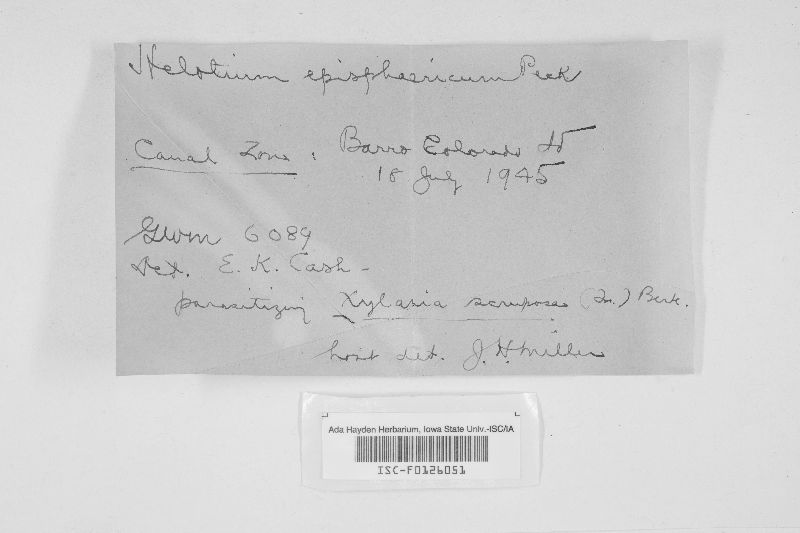 Helotium episphaericum Peck
Canal Zone: Barro Colorado Id
18 July 1945
GWM 6089
Det. E. K. Cash -
parasitizing Xylaria scruposa (Fr.) Berk.
host det. J. H. Miller
Ada Hayden Herbarium, Iowa State Univ.-ISC/IA
ISC-F0126051